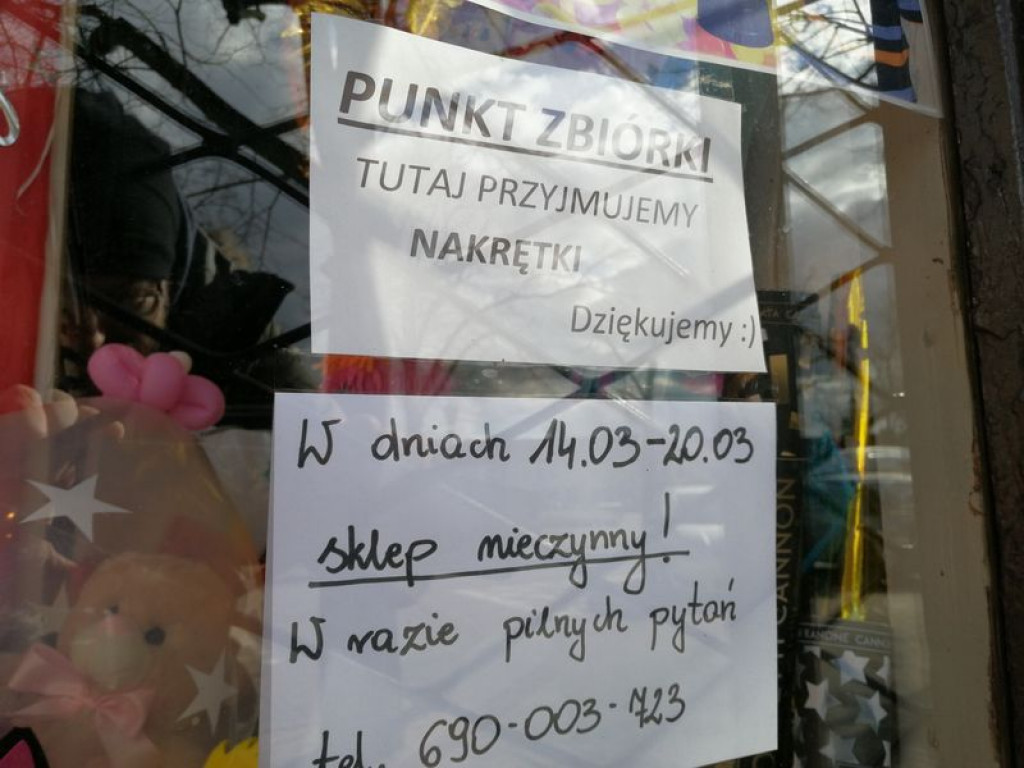 PUNKT ZBIÓRKI
TUTAJ PRZYJMUJEMY
NAKRĘTKI
Dziękujemy :)
W dniach 14.03-20.03
sklep nieczynny!
W razie pilnych pytań
tel. 690-003-723
CANNON